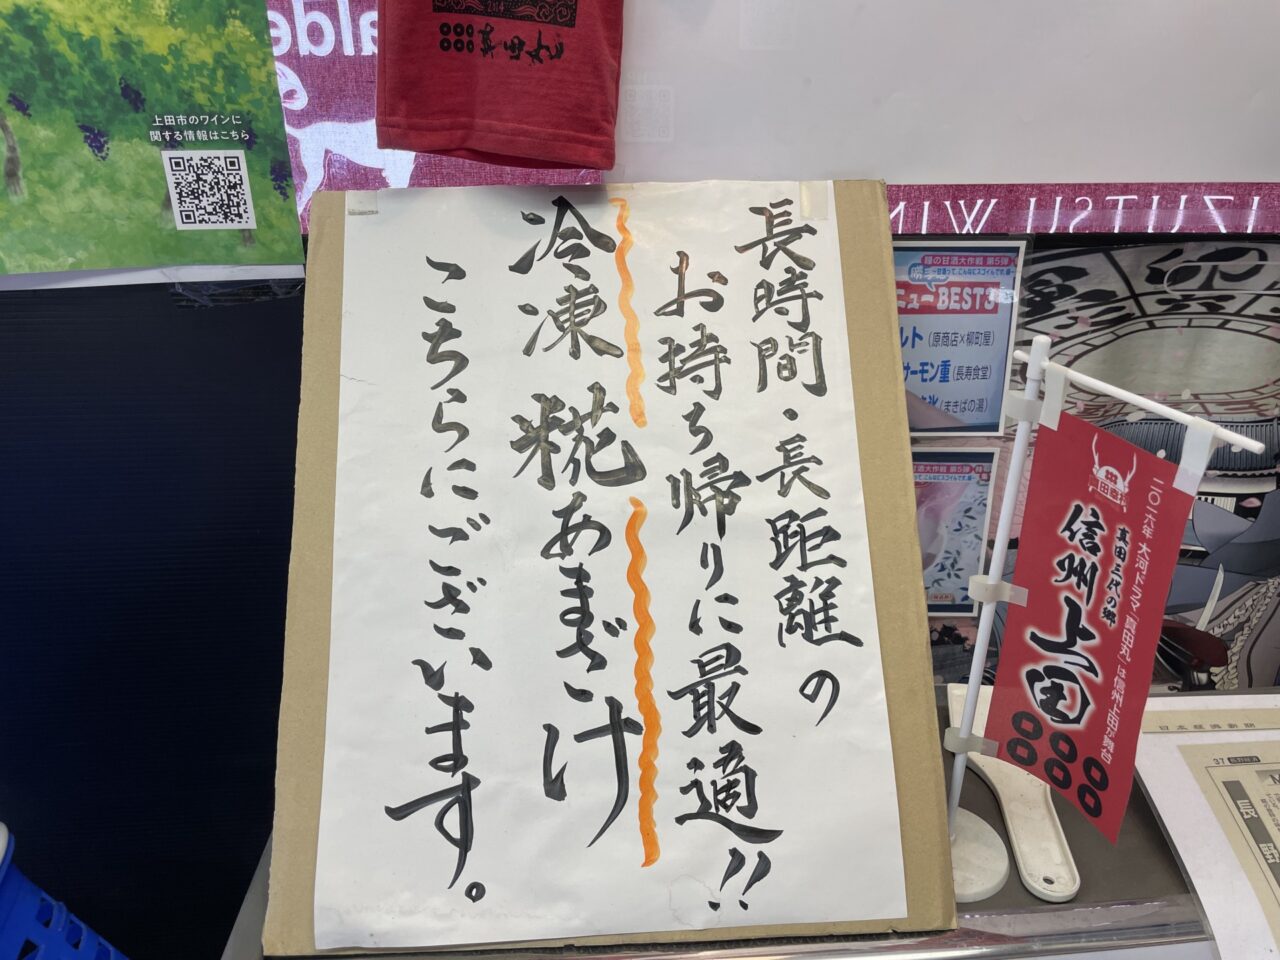 長時間・長距離の
お持ち帰りに最適!!
冷凍 糀あまざけ
こちらにございます。
上田市のワインに
関する情報はこちら
2014
真田丸
alde
IZUTSU WIN
糀の甘酒大作戦 第5弾
ニューBEST3
ルト(原商店×柳町屋)
サーモン重(長寿食堂)
氷(まきばの湯)
甘酒大作戦 第5弾
二〇一六年 大河ドラマ「真田丸」は信州上田が舞台
真田三代の郷
信州上田
日本経済新聞
37